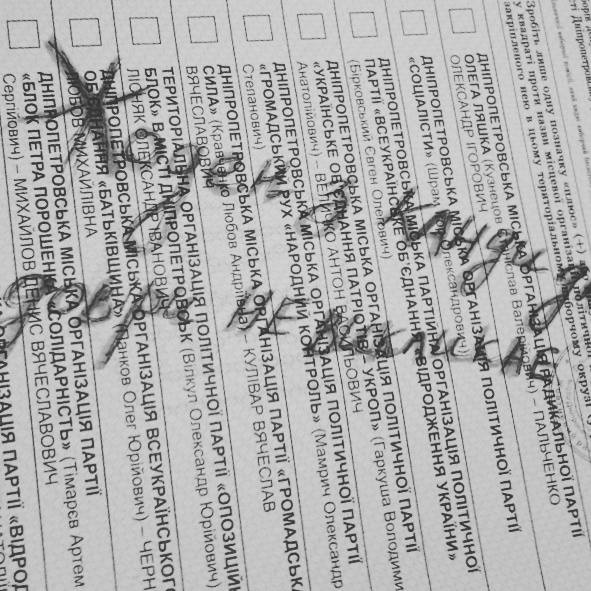 Зробіть лише одну позначку «плюс» (+) а
у квадраті проти назви місцевої організації політичної
закріпленого нею в цьому територіальному виборчому окрузі
ДНІПРОПЕТРОВСЬКА МІСЬКА ОРГАНІЗАЦІЯ РАДИКАЛЬНОЇ ПАРТІЇ
ОЛЕГА ЛЯШКА (Кузнецов Станіслав Валерійович) – ПАЛЬЧЕНКО
ОЛЕКСАНДР ІГОРОВИЧ
ДНІПРОПЕТРОВСЬКА МІСЬКА ОРГАНІЗАЦІЯ ПОЛІТИЧНОЇ ПАРТІЇ
«СОЦІАЛІСТИ» (Шрам Олександрович)
ДНІПРОПЕТРОВСЬКА МІСЬКА ПАРТІЙНА ОРГАНІЗАЦІЯ ПОЛІТИЧНОЇ
ПАРТІЇ «ВСЕУКРАЇНСЬКЕ ОБ'ЄДНАННЯ «ВІДРОДЖЕННЯ УКРАЇНИ»
(Бірковський Євген Олегович)
ДНІПРОПЕТРОВСЬКА МІСЬКА ОРГАНІЗАЦІЯ ПОЛІТИЧНОЇ ПАРТІЇ
«УКРАЇНСЬКЕ ОБ'ЄДНАННЯ ПАТРІОТІВ – УКРОП» (Гаркуша Володими
Анатолійович) – АНТОН ВАСИЛЬОВИЧ
ДНІПРОПЕТРОВСЬКА МІСЬКА ОРГАНІЗАЦІЯ ПОЛІТИЧНОЇ ПАРТІЇ
«ГРОМАДСЬКИЙ РУХ «НАРОДНИЙ КОНТРОЛЬ» (Мамрич Олександр
Степанович)
ДНІПРОПЕТРОВСЬКА МІСЬКА ОРГАНІЗАЦІЯ ПАРТІЇ «ГРОМАДСЬКА
СИЛА» (Кравченко Любов Андріївна) – КУЛІВАР ВЯЧЕСЛАВ
ВЯЧЕСЛАВОВИЧ
ТЕРИТОРІАЛЬНА ОРГАНІЗАЦІЯ ПОЛІТИЧНОЇ ПАРТІЇ «ОПОЗИЦІЙН
БЛОК» В МІСТІ ДНІПРОПЕТРОВСЬК (Вілкул Олександр Юрійович)
ОЛЕКСАНДР ІВАНОВИЧ
ДНІПРОПЕТРОВСЬКА МІСЬКА ОРГАНІЗАЦІЯ ВСЕУКРАЇНСЬКОГО
ОБ'ЄДНАННЯ «БАТЬКІВЩИНА» (Панков Олег Юрійович) – ЧЕРН
ЛЮБОВ МИХАЙЛІВНА
ДНІПРОПЕТРОВСЬКА МІСЬКА ОРГАНІЗАЦІЯ ПАРТІЇ
«БЛОК ПЕТРА ПОРОШЕНКА «СОЛІДАРНІСТЬ» (Тімарєв Артем
Сергійович) – МИХАЙЛОВ ДЕНИС ВЯЧЕСЛАВОВИЧ
ОРГАНІЗАЦІЯ ПАРТІЇ «ВІДРОД
добра не